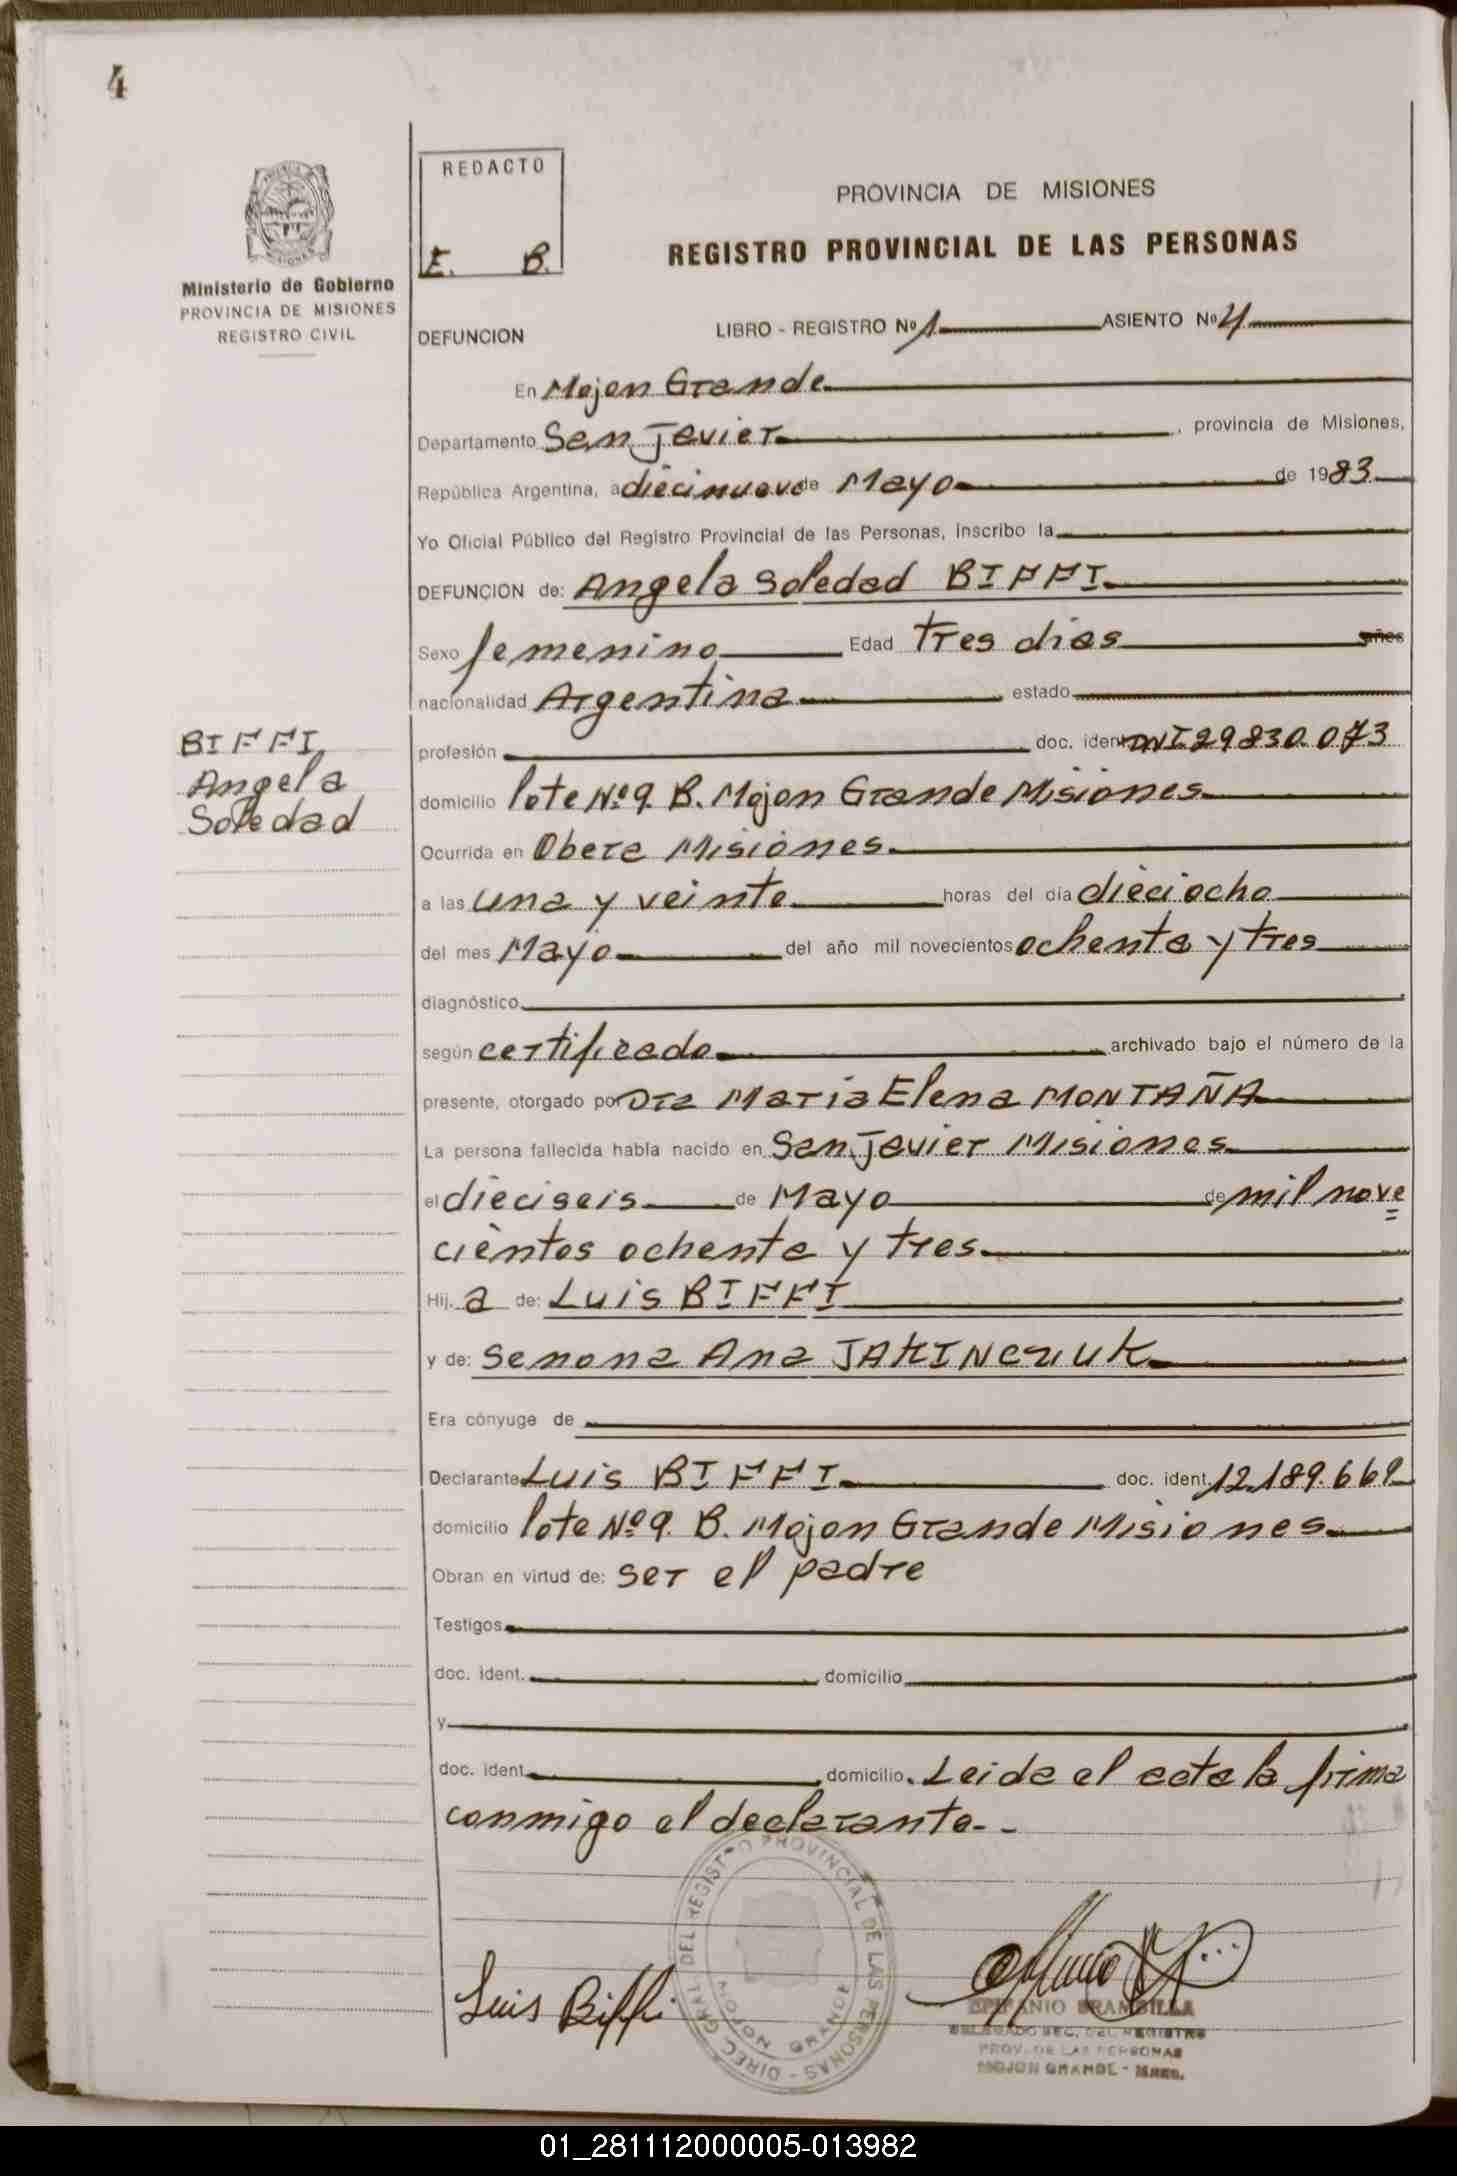 4
REDACTO
E. B.
Ministerio de Gobierno
PROVINCIA DE MISIONES
REGISTRO CIVIL
PROVINCIA DE MISIONES
REGISTRO PROVINCIAL DE LAS PERSONAS
DEFUNCION LIBRO - REGISTRO Nº 1 ASIENTO Nº 4
En Mojon Grande
Departamento San Javier, provincia de Misiones,
República Argentina, a diecinueve de Mayo de 1983
Yo Oficial Público del Registro Provincial de las Personas, inscribo la
DEFUNCION de: Angela Soledad BIFFI
Sexo femenino Edad tres dias años
nacionalidad Argentina estado
BIFFI
Angela
Soledad
profesión doc. ident. DNI 29830.073
domicilio lote Nº 9. B. Mojon Grande Misiones
Ocurrida en Obera Misiones
a las una y veinte horas del día dieciocho
del mes Mayo del año mil novecientos ochenta y tres
diagnóstico
según certificado archivado bajo el número de la
presente, otorgado por Dra Maria Elena MONTAÑA
La persona fallecida había nacido en San Javier Misiones
el dieciseis de Mayo de mil nove
cientos ochenta y tres
Hij. a de: Luis BIFFI
y de: Senona Ana JAKINCZUK
Era cónyuge de
Declarante Luis BIFFI doc. ident. 12.189.669
domicilio lote Nº 9. B. Mojon Grande Misiones
Obran en virtud de: ser el padre
Testigos
doc. ident. domicilio
y
doc. ident. domicilio. Leida el acta la firma
conmigo el declarante.-
DIREC. GRAL. DEL REGISTRO PROVINCIAL DE LAS PERSONAS
MOJON GRANDE
Luis Biffi
EPIFANIO BRAMBILLA
DELEGADO SEC. DEL REGISTRO
PROV. DE LAS PERSONAS
MOJON GRANDE - Mnes.
01_281112000005-013982